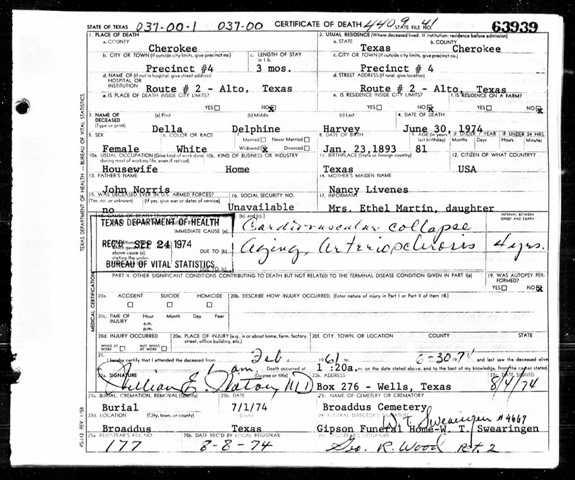 STATE OF TEXAS 037-00-1 037-00 CERTIFICATE OF DEATH 440.9 41 STATE FILE NO. 63939
1. PLACE OF DEATH 2. USUAL RESIDENCE (Where deceased lived. If institution: residence before admission)
a. COUNTY Cherokee a. STATE Texas b. COUNTY Cherokee
b. CITY OR TOWN (If outside city limits, give precinct no.) Precinct #4 c. LENGTH OF STAY in 1 b. 3 mos. c. CITY OR TOWN (If outside city limits, give precinct no.) Precinct # 4
d. NAME OF (If not in hospital, give street address) HOSPITAL OR INSTITUTION Route # 2 - Alto, Texas d. STREET ADDRESS (If rural, give location) Route # 2 - Alto, Texas
e. IS PLACE OF DEATH INSIDE CITY LIMITS? YES NO X e. IS RESIDENCE INSIDE CITY LIMITS? YES NO X f. IS RESIDENCE ON A FARM? YES NO X
3. NAME OF DECEASED (Type or print) (a) First Della (b) Middle Delphine (c) Last Harvey 4. DATE OF DEATH June 30, 1974
5. SEX Female 6. COLOR OR RACE White 7. Married Never Married Widowed X Divorced 8. DATE OF BIRTH Jan. 23,1893 81 IF UNDER 24 HRS.
10a. USUAL OCCUPATION (Give kind of work done during most of working life, even if retired) Housewife 10b. KIND OF BUSINESS OR INDUSTRY Home 11. BIRTHPLACE (State or foreign country) Texas 12. CITIZEN OF WHAT COUNTRY? USA
13. FATHER'S NAME John Norris 14. MOTHER'S MAIDEN NAME Nancy Livenes
15. WAS DECEASED EVER IN U.S. ARMED FORCES? no 16. SOCIAL SECURITY NO. Unavailable 17. INFORMANT Mrs. Ethel Martin, daughter
TEXAS DEPARTMENT OF HEALTH IMMEDIATE CAUSE (a) Cardiovascular collapse INTERVAL BETWEEN ONSET AND DEATH
REC'D SEP 24 1974 DUE TO (b) Aging, Arteriosclerosis 4 yrs.
BUREAU OF VITAL STATISTICS DUE TO (c)
PART II. OTHER SIGNIFICANT CONDITIONS CONTRIBUTING TO DEATH BUT NOT RELATED TO THE TERMINAL DISEASE CONDITION GIVEN IN PART I(a) 19. WAS AUTOPSY PERFORMED? YES NO X
20a. ACCIDENT SUICIDE HOMICIDE 20b. DESCRIBE HOW INJURY OCCURRED. (Enter nature of injury in Part I or Part II of Item 18.)
20c. TIME OF INJURY Hour Month Day Year a.m. p.m.
20d. INJURY OCCURRED WHILE AT WORK NOT WHILE AT WORK 20e. PLACE OF INJURY (e.g., in or about home, farm, factory, street, office building, etc.) 20f. CITY, TOWN, OR LOCATION COUNTY STATE
21. I hereby certify that I attended the deceased from Feb. 61 6-30-74 and last saw the deceased alive
am Death occurred at 1:20a.m. on the date stated above, and to the best of my knowledge, from the causes stated.
22a. SIGNATURE William E. MD (Degree or title) 22b. ADDRESS Box 276 - Wells, Texas 8/4/74
23a. BURIAL, CREMATION, REMOVAL (Specify) Burial 23b. DATE 7/1/74 23c. NAME OF CEMETERY OR CREMATORY Broaddus Cemetery
23d. LOCATION (City, town, or county) (State) Broaddus Texas W. T. Swearingen #4667 Gipson Funeral Home-W. T. Swearingen
25a. REGISTRAR'S FILE NO. 177 25b. DATE REC'D BY LOCAL REGISTRAR 8-8-74 Geo. R. Wood Rt. 2
MEDICAL CERTIFICATION
TEXAS DEPARTMENT OF HEALTH — BUREAU OF VITAL STATISTICS